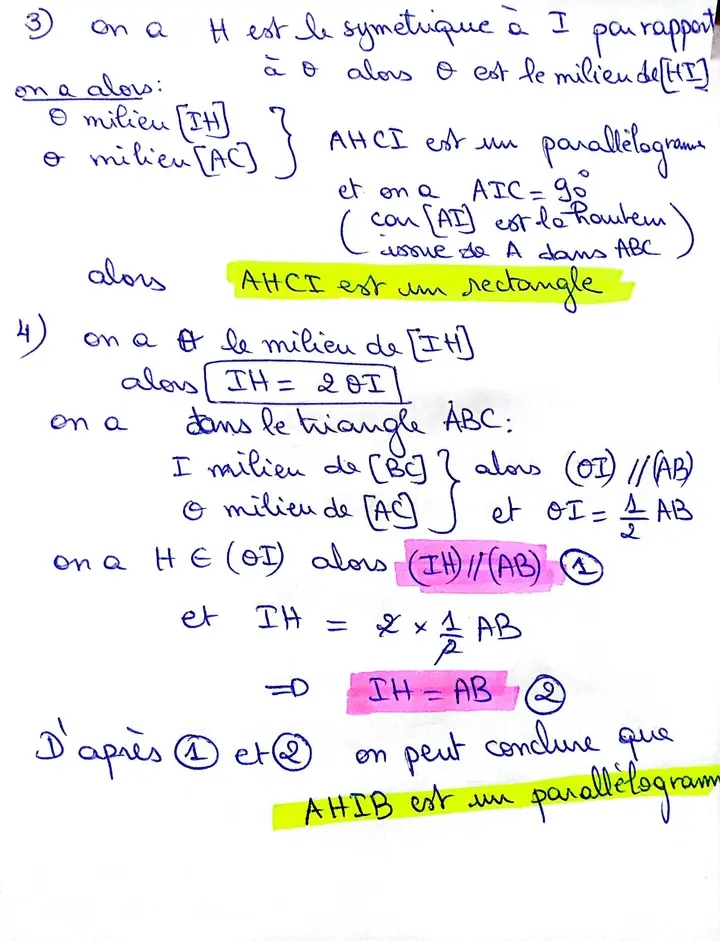 3) on a H est le symétrique à I par rapport
à O alors O est le milieu de [HI]
on a alors:
O milieu [IH]
O milieu [AC] } AHCI est un parallélogramme
et on a AIC = 90°
( car [AI] est la hauteur
issue de A dans ABC )
alors AHCI est un rectangle
4) on a O le milieu de [IH]
alors IH = 2 OI
on a dans le triangle ABC:
I milieu de [BC] } alors (OI) // (AB)
O milieu de [AC] } et OI = 1/2 AB
on a H ∈ (OI) alors (IH) // (AB) ①
et IH = 2 × 1/2 AB
=> IH = AB ②
D'après ① et ② on peut conclure que
AHIB est un parallélogramm